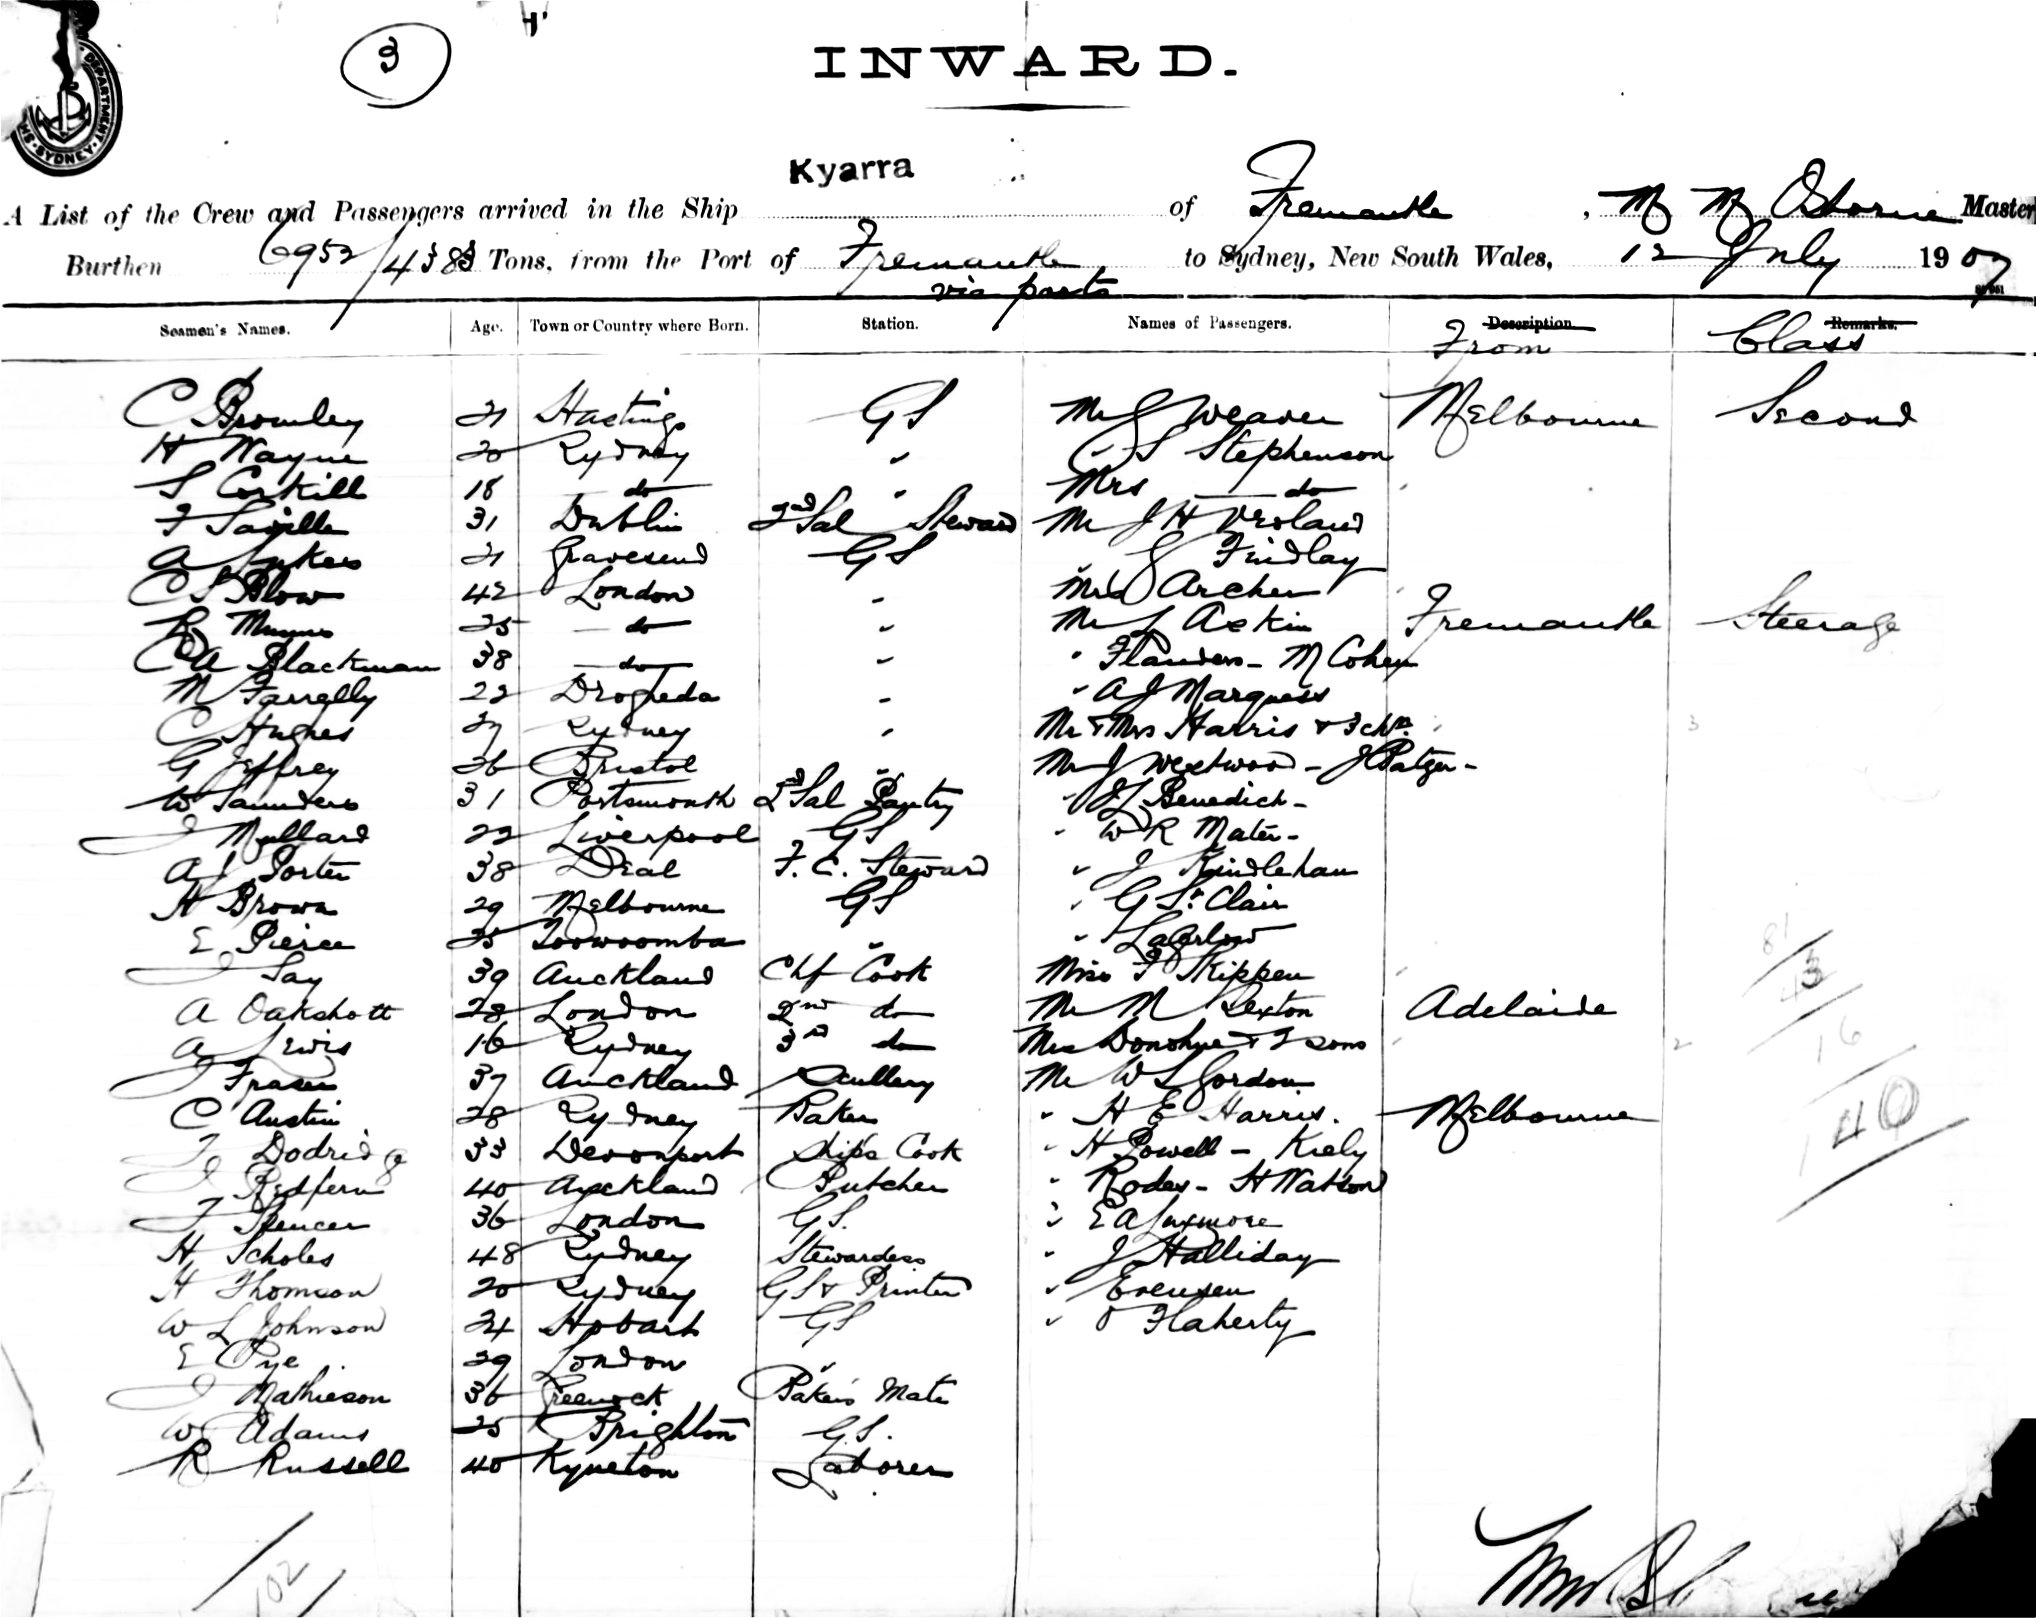 3
INWARD.
DEPARTMENT
SYDNEY
Kyarra
A List of the Crew and Passengers arrived in the Ship of Fremantle, M M Osborne Master
Burthen 6952/4383 Tons, from the Port of Fremantle to Sydney, New South Wales, 12 July 1907
via ports
Seamen's Names. Age. Town or Country where Born. Station. Names of Passengers. Description Remarks.
From Class
C Bromley 21 Hastings GS Mr J Weaver Melbourne Second
H Wayne 20 Sydney " " S Stephenson
S Corkill 18 do " Mrs do
F Saville 31 Dublin 2nd Sal Steward Mr J H Vroland
A 21 Gravesend GS " Findlay
C S Blow 42 London " Mrs Archer
25 do " Mr L Askin Fremantle Steerage
C A Blackman 38 do " " Flanders - M Cohen
M Farrelly 22 Drogheda " " A J Marquess
C Hughes 27 Sydney " Mr & Mrs Harris & 3 chn 3
G Jeffrey 26 Bristol " Mr J Westwood - J
W Saunders 31 Portsmouth 2nd Sal Pantry " J L Benedich -
J Mullard 22 Liverpool GS " W R Mater -
A J Porter 38 Deal F.C. Steward " J Kindlehan
H Brown 29 Melbourne GS " G St Clair
E Pierce 25 Toowoomba " "
J Say 39 Auckland Chf Cook Miss F Skippen
A Oakshott 28 London 2nd do Mr M Sexton Adelaide
A Lewis 16 Sydney 3rd do Mrs Donohue & 2 sons 2
J Fraser 37 Auckland Scullery Mr W L Gordon
C Austin 28 Sydney Baker " H E Harris. Melbourne
T Dodridge 33 Devonport Ships Cook " H Powell - Kiely
J Redfern 40 Auckland Butcher " Rodes - H Watson
T Spencer 36 London GS. " E A Luxmore
H Scholes 48 Sydney Stewardess " J Halliday
H Thomson 20 Sydney GS & Printer " Evensen
W L Johnson 24 Hobart GS " O Flaherty
E Pye 29 London "
J Mathieson 36 Greenock Bakers Mate
W Adams 25 Brighton G.S.
R Russell 40 Kyneton Laborer
102